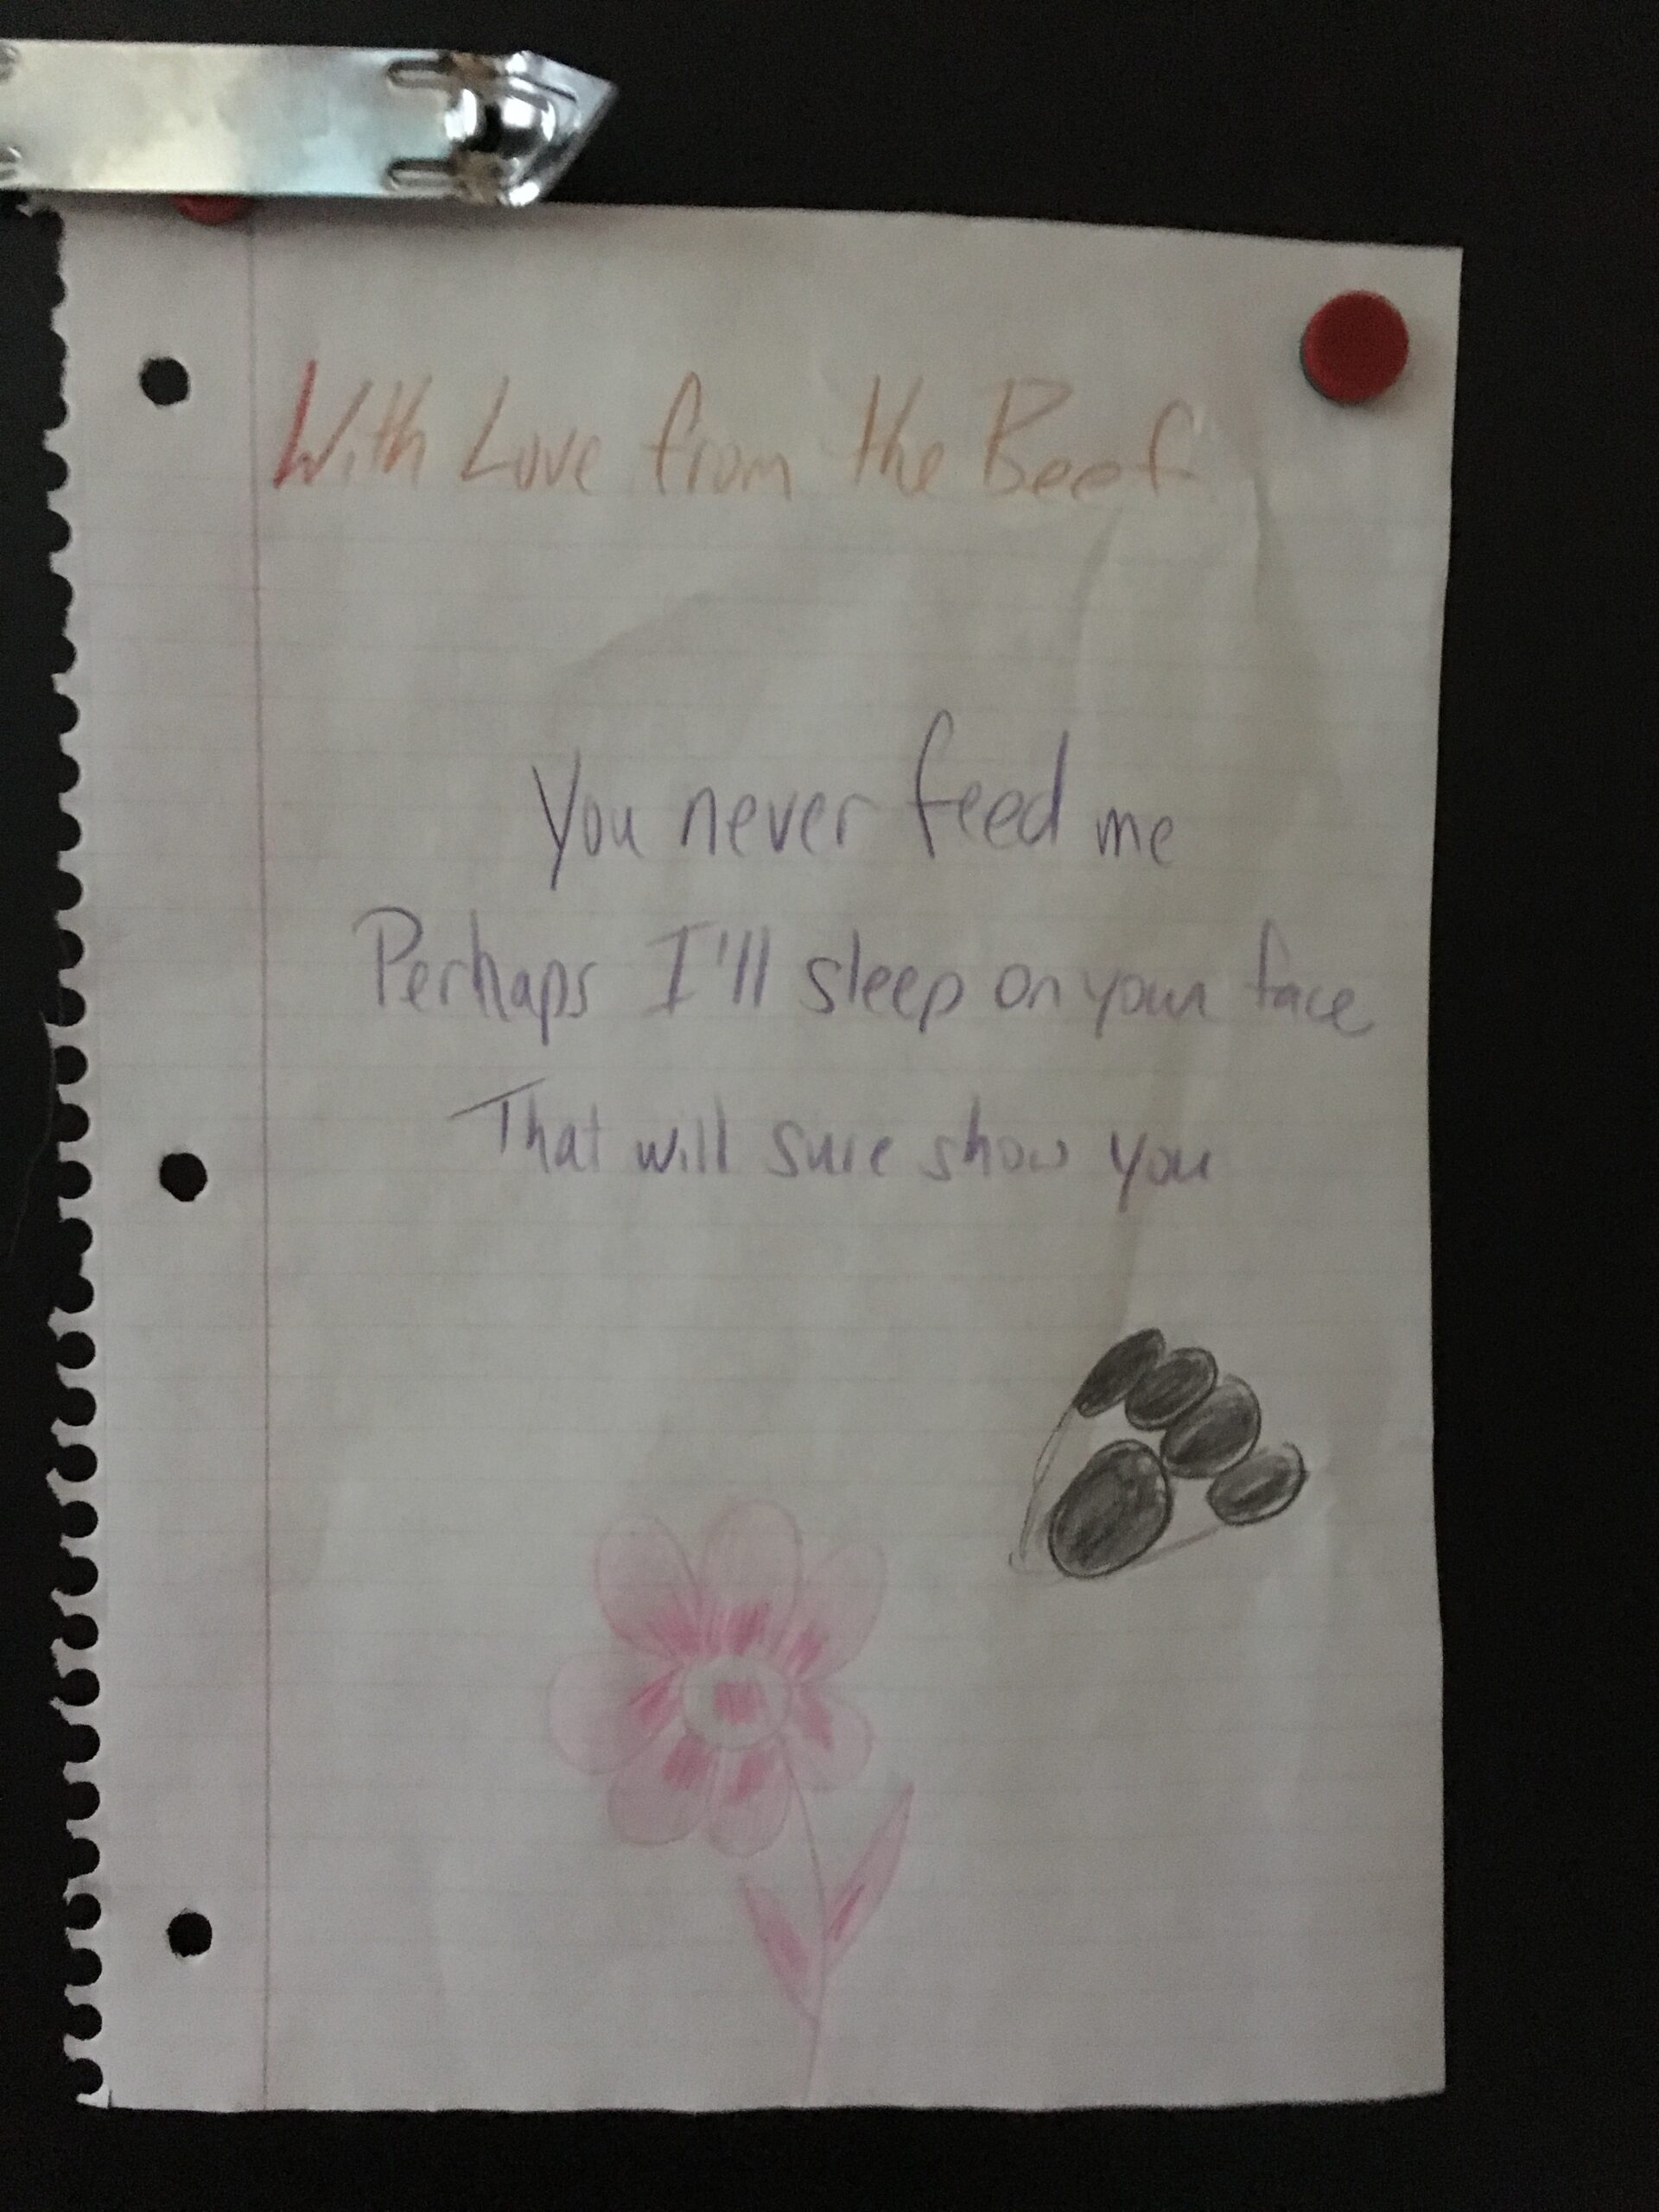 With Love from the Beef
You never feed me
Perhaps I'll sleep on your face
That will sure show you